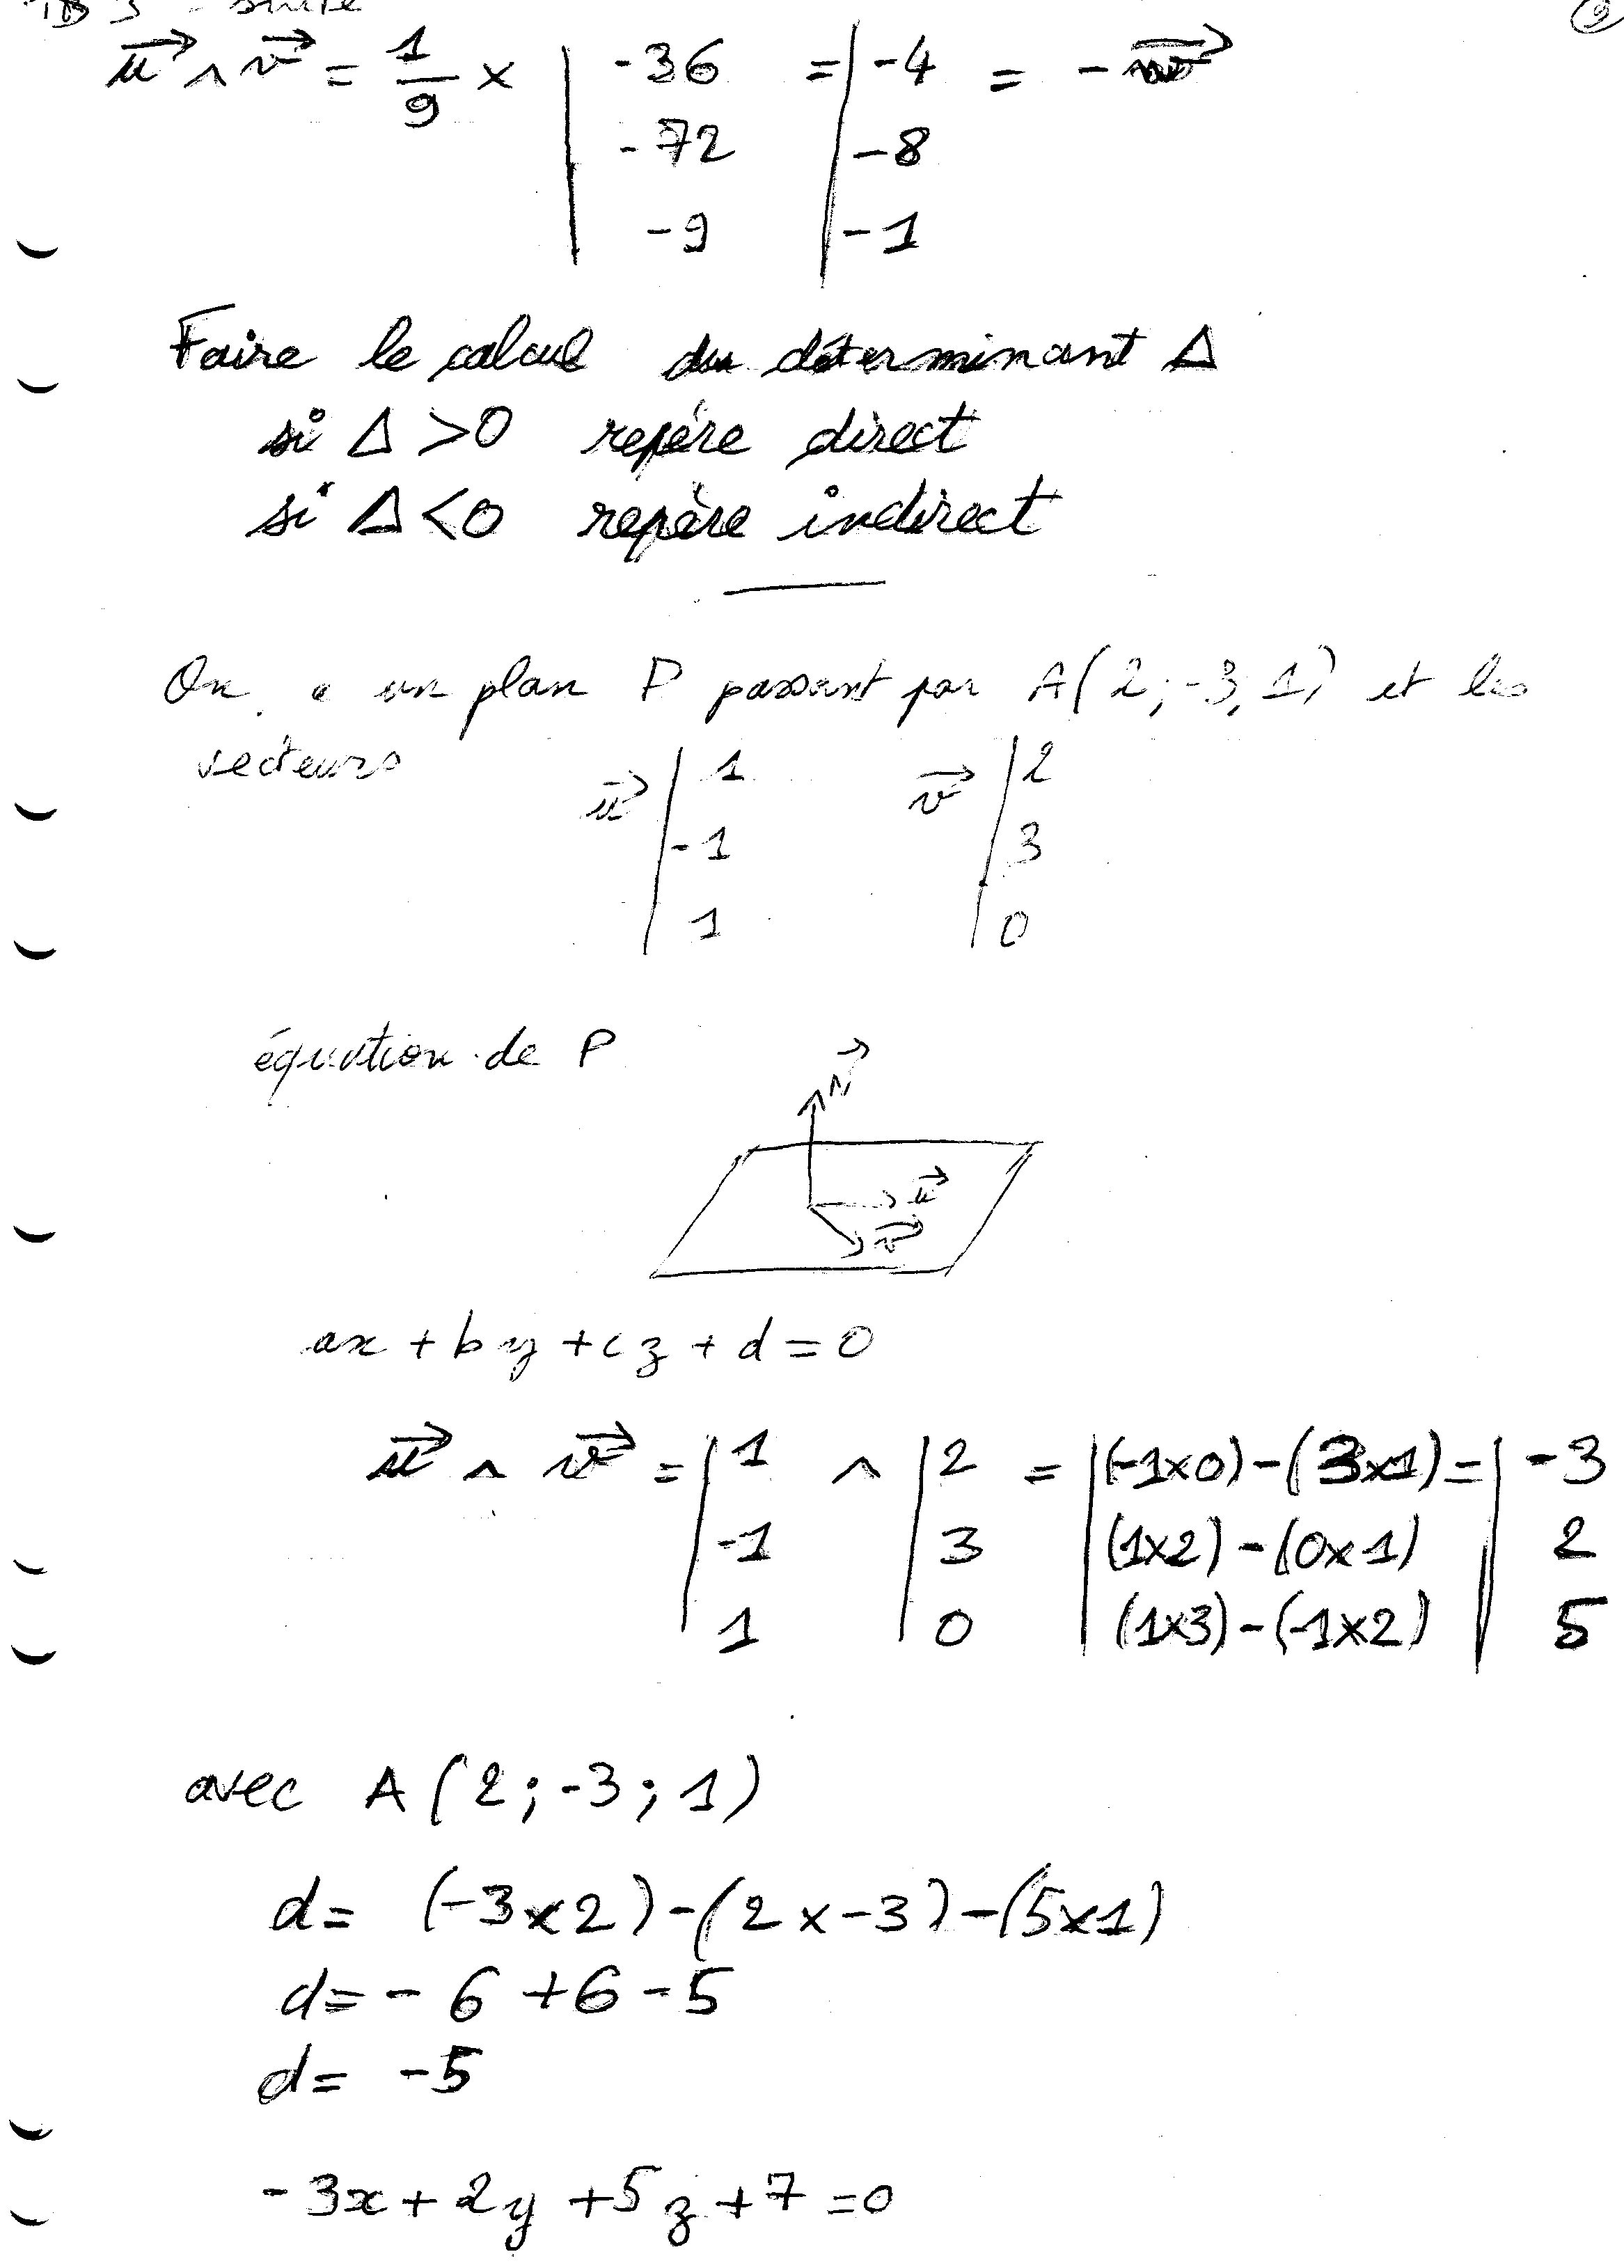 TD 3 - suite
②
u⃗ ∧ v⃗ = 1/9 × | -36 = | -4 = - w⃗
| -72 | -8
| -9 | -1
Faire le calcul du déterminant Δ
si Δ > 0 repère direct
si Δ < 0 repère indirect
On a un plan P passant par A(2; -3, 1) et les
vecteurs u⃗ | 1 v⃗ | 2
| -1 | 3
| 1 | 0
équation de P
N⃗
u⃗
v⃗
ax + by + cz + d = 0
u⃗ ∧ v⃗ = | 1 ∧ | 2 = | (-1×0) - (3×1) = | -3
| -1 | 3 | (1×2) - (0×1) | 2
| 1 | 0 | (1×3) - (-1×2) | 5
avec A (2; -3; 1)
d = (-3×2) - (2×-3) - (5×1)
d = - 6 + 6 - 5
d = -5
-3x + 2y + 5z + 7 = 0